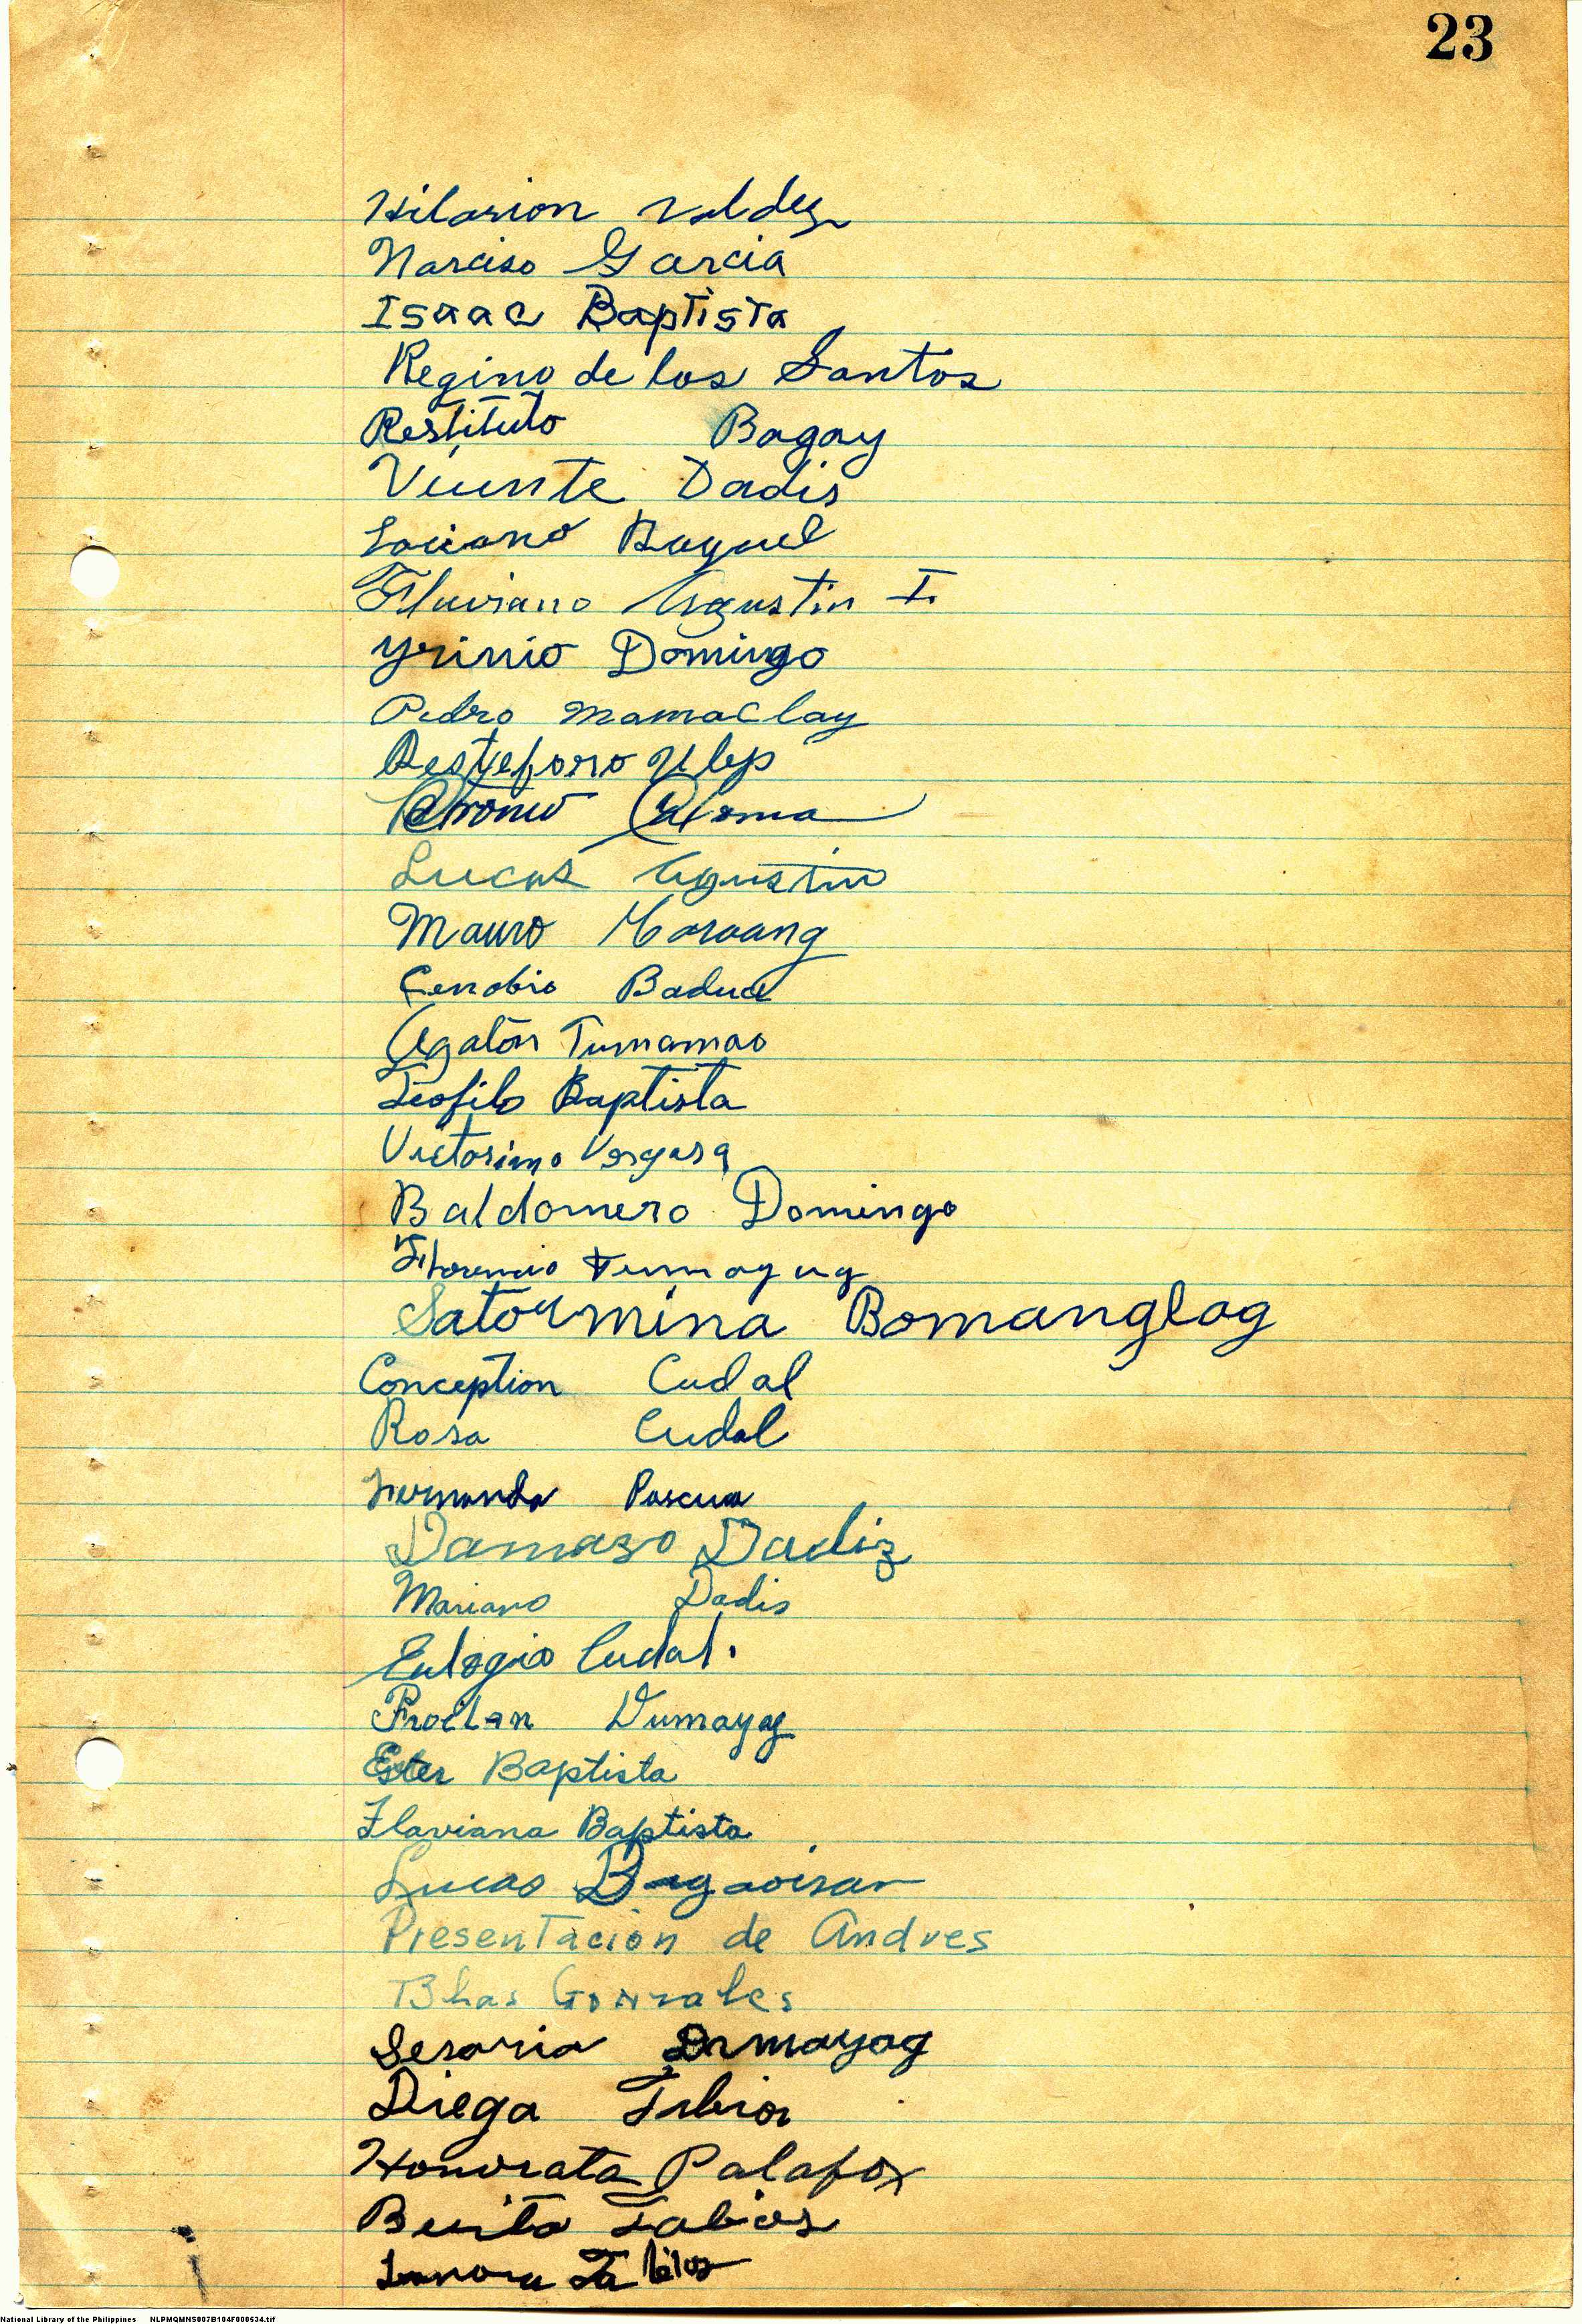 23
Hilarion Valdez
Narciso Garcia
Isaac Baptista
Regino de los Santos
Restituto Bagay
Vicente Dadis
Baquel
Flaviano Agustin I.
Yrinio Domingo
Pedro Mamaclay
Ulep
Paloma
Lucas Agustin
Mauro
Cenobio Badua
Agaton Tumamao
Teofilo Baptista
Victorino Vergara
Baldomero Domingo
Florencio
Satormina Bomanglag
Conception Cudal
Rosa Cudal
Fernanda Pascua
Damaso Dadiz
Mariano Dadis
Eulogio Cudal.
Froilan Dumayag
Ester Baptista
Flaviana Baptista
Lucas Bagaoisan
Presentacion de Andres
Blas Gonzales
Sesaria Dumayag
Diega
Honorata Palafox
Benita Tabios
Tabios
National Library of the Philippines NLPMQMNS007B104F000534.tif